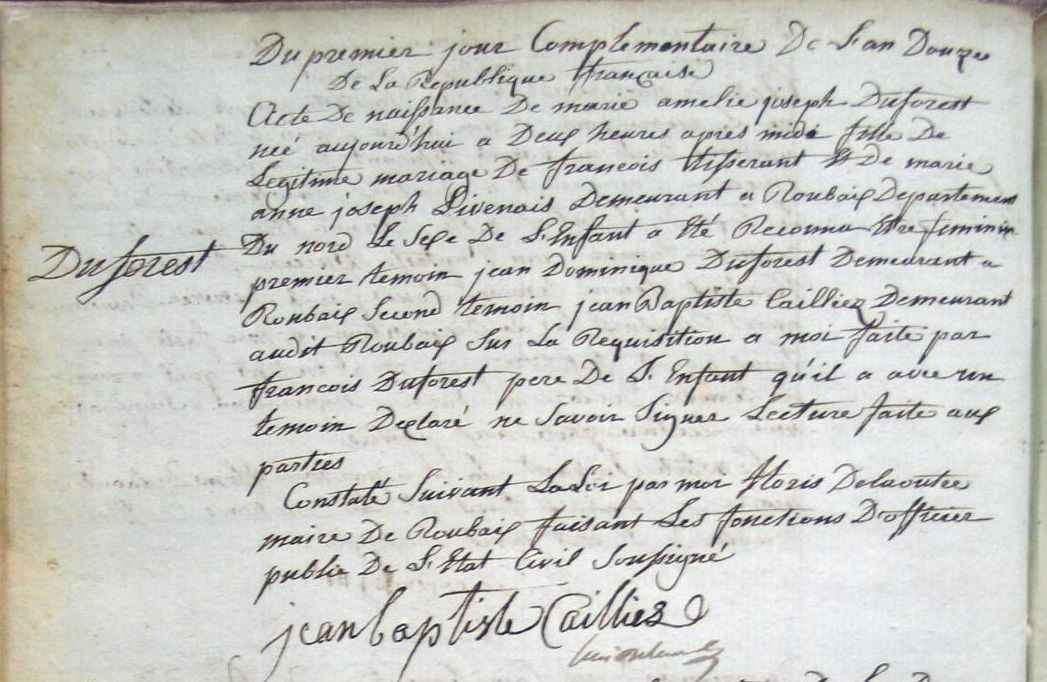 Du premier jour Complementaire De L'an Douze
De La Republique française
Acte De naissance De marie amelie joseph Duforest
neé aujourd'hui a Deux heures apres midi fille De
Legitime mariage De francois tisserant Et De marie
anne joseph Divenais Demeurant a Roubaix Departement
Duforest
Du nord Le Sexe De L'Enfant a Eté Reconnu Etre feminin
premier temoin jean Dominique Duforest Demeurant a
Roubaix Second temoin jean Baptiste Cailliez Demeurant
audit Roubaix Sur La Requisition a moi faite par
francois Duforest pere De L'Enfant qu'il a avec un
temoin Declaré ne Savoir Signer Lecture faite aux
parties
Constaté Suivant La Loi par moi floris Delaoutre
maire De Roubaix faisant Les fonctions D'officier
public De L'Etat Civil Soussigné
jean baptiste Cailliez